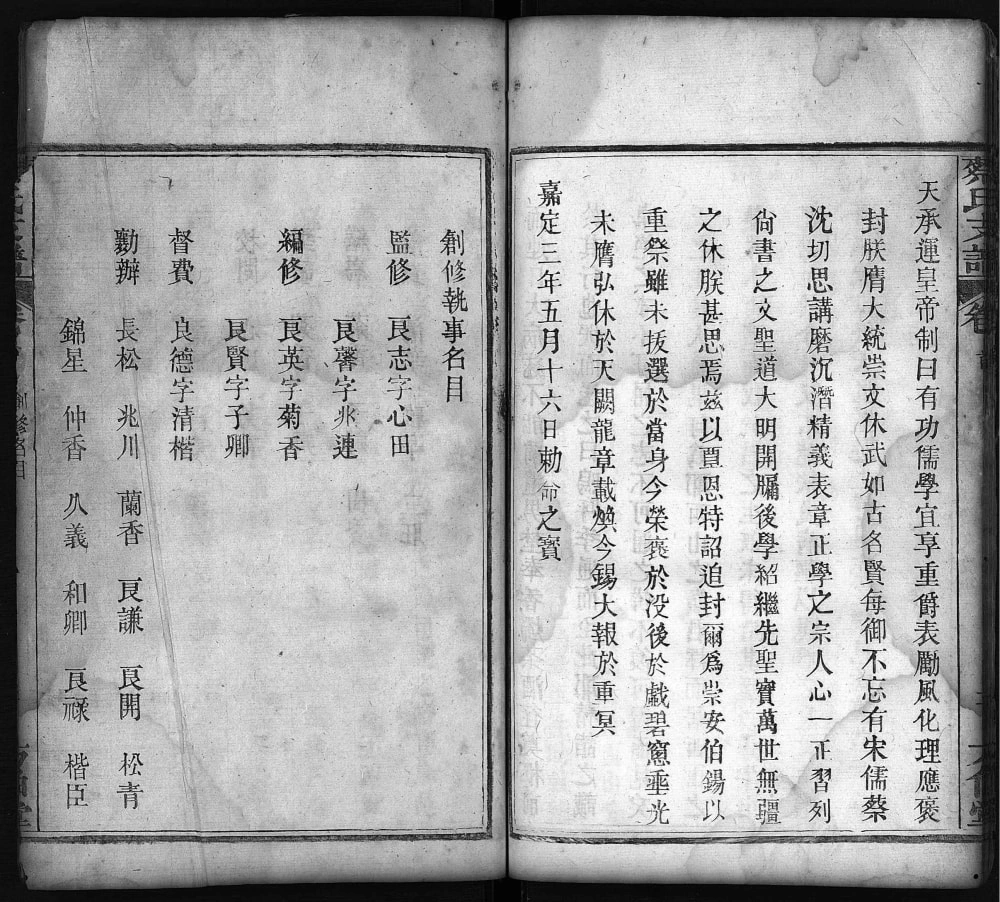 蔡氏支譜
卷首
天承運皇帝制曰有功儒學宜享重爵表勵風化理應褒
封朕膺大統崇文休武如古名賢每御不忘有宋儒蔡
沈切思講磨沉潛精義表章正學之宗人心一正習列
尙書之文聖道大明開牖後學紹繼先聖實萬世無疆
之休朕甚思焉兹以覃恩特詔追封爾爲崇安伯錫以
重祭雖未拔選於當身今榮褒於没後於戯碧窻埀光
未膺弘休於天闕龍章載煥今錫大報於重冥
嘉定三年五月十六日勅命之寳
創修執事名目
監修 艮志字心田
艮馨字兆連
編修 艮英字菊香
艮賢字子卿
督費 良德字清楷
勷辦 長松 兆川 蘭香 艮謙 艮開 松青
錦星 仲香 从義 和卿 艮祿 楷臣
創修名目